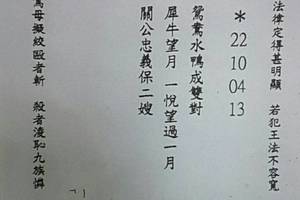 法律定得甚明顯 若犯王法不容寬
*
22
10
04
13
鴛鴦水鴨成雙對
犀牛望月 一悅望過一月
關公忠義保二嫂
罵母擬絞毆者斬 殺者淩恥九族懼